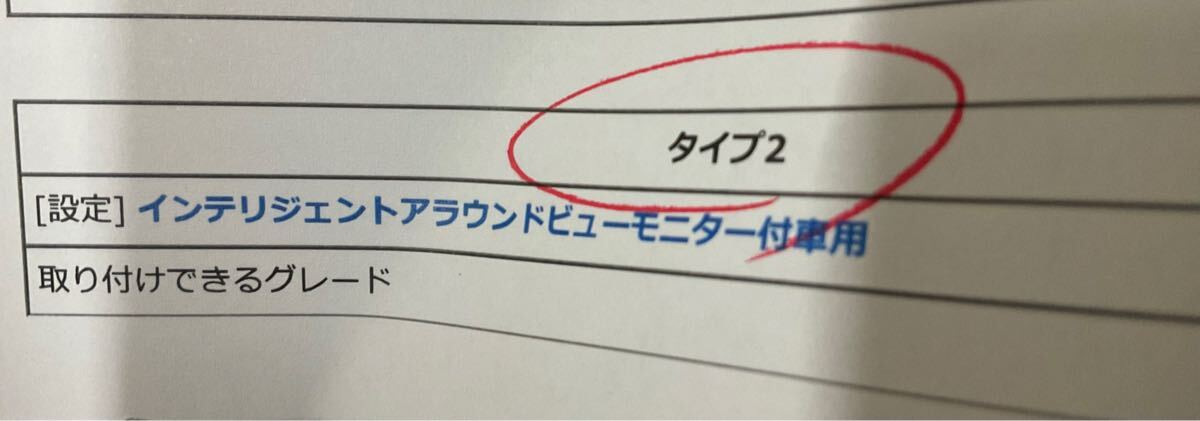 タイプ2
[設定] インテリジェントアラウンドビューモニター付車用
取り付けできるグレード